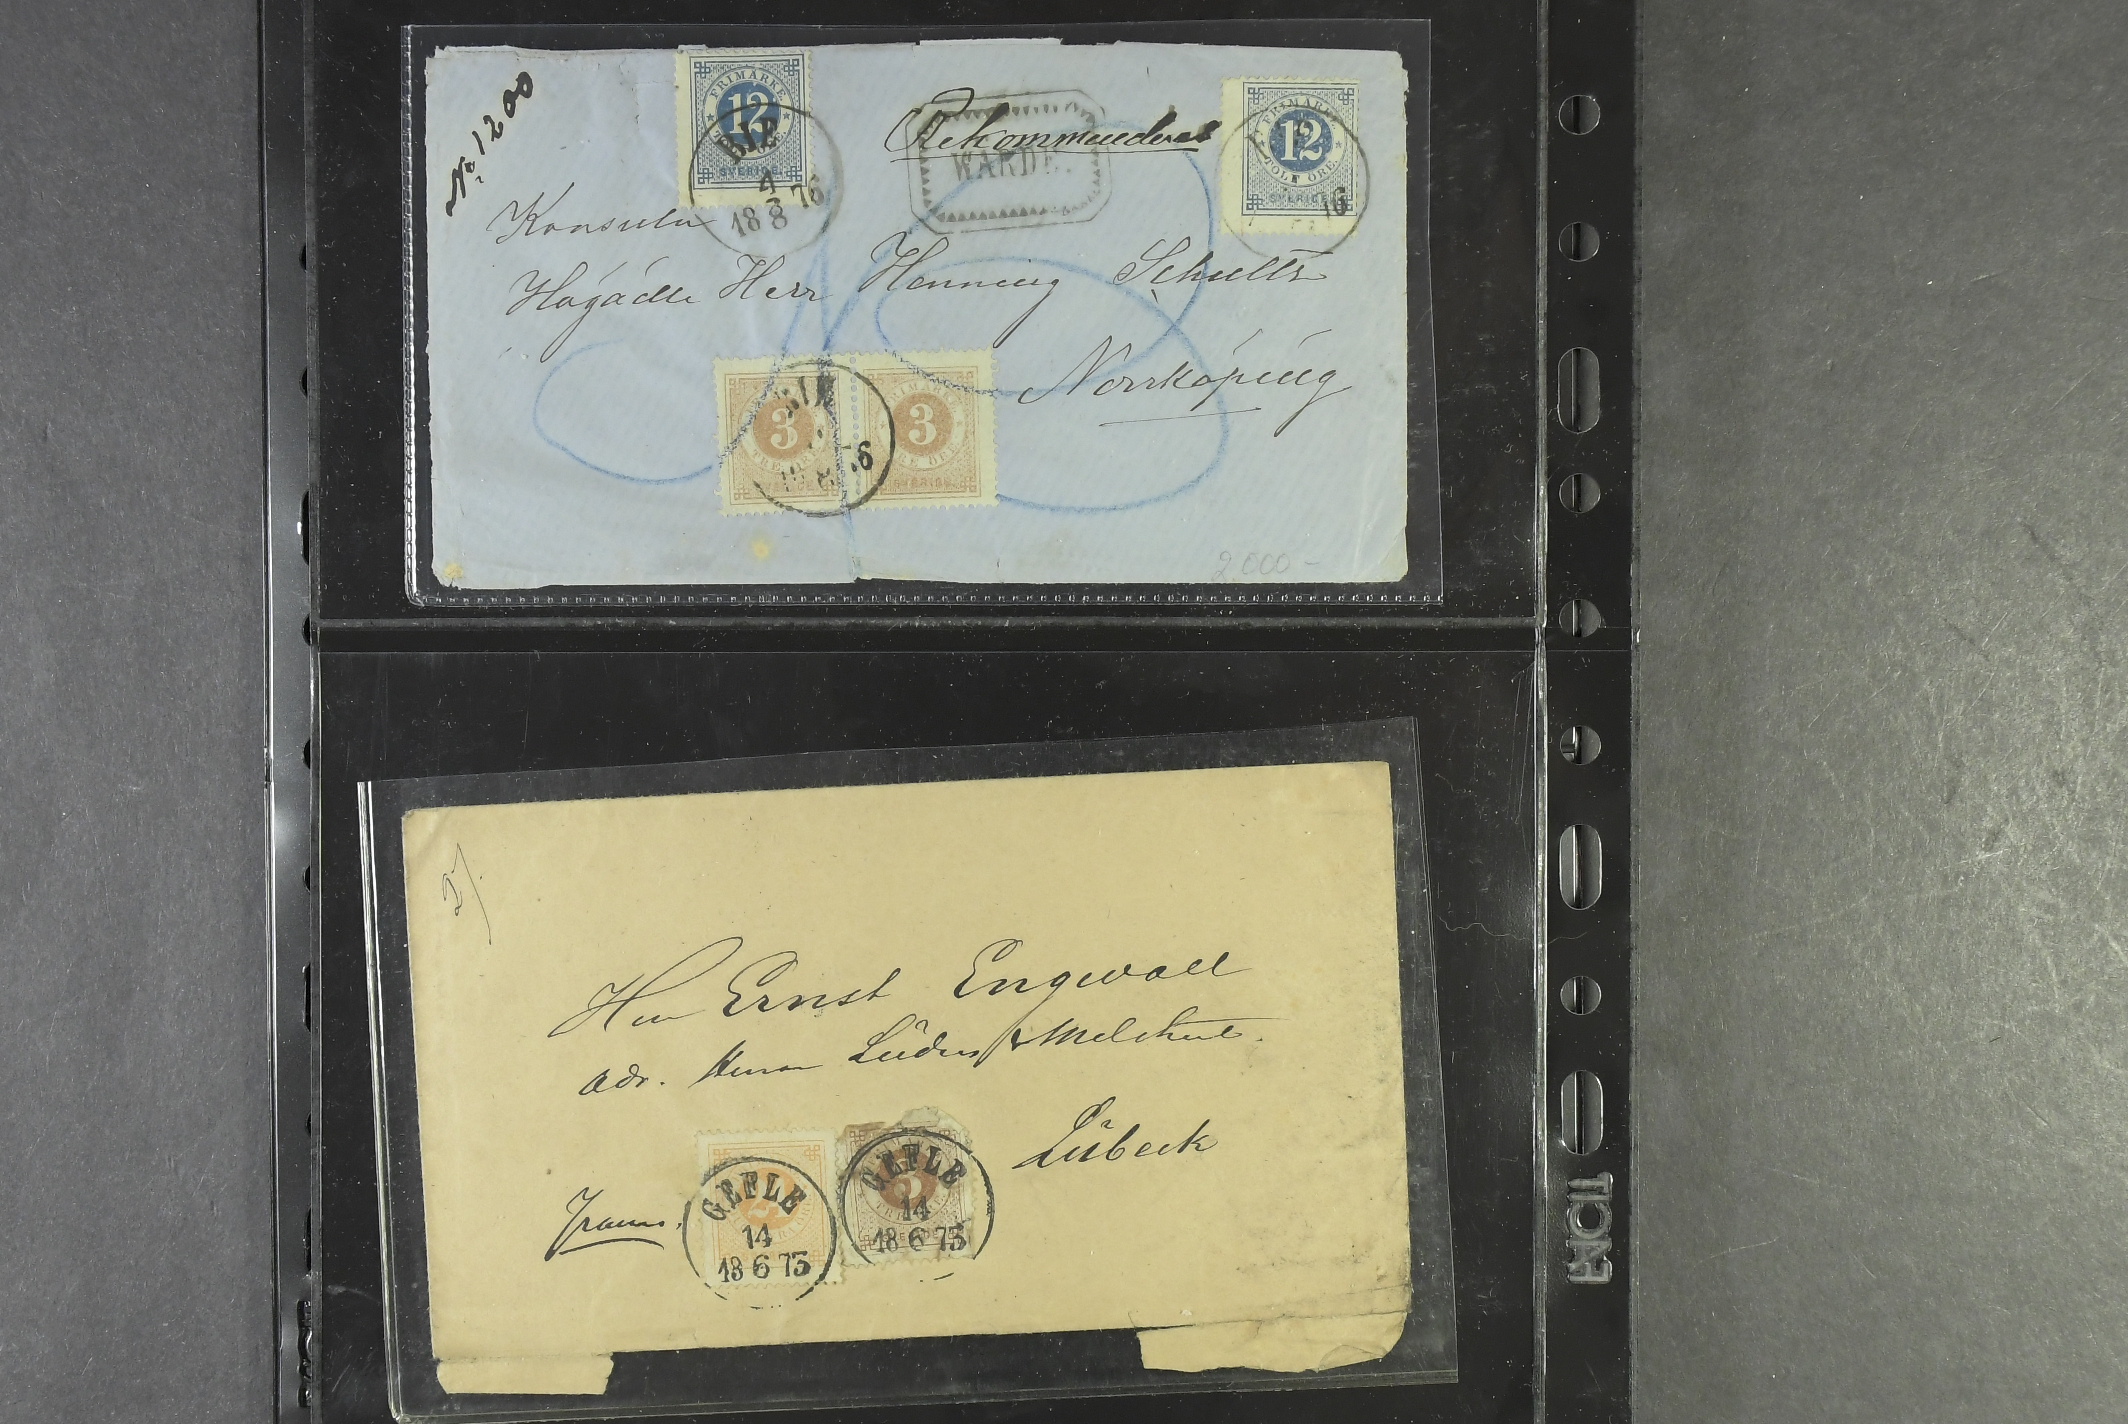 No 1200
FRIMÄRKE
12
SVERIGE
BIE
4
18 8 76
Rekommenderas
WARDE.
FRIMÄRKE
12
TOLF ÖRE
SVERIGE
76
Konsuln
Högädle Herr Henning Schultz
Norrköping
3
TRE
SVERIGE
FRIMÄRKE
3
TRE ÖRE
SVERIGE
2000-
Herr Ernst Engwall
adr. Herren Lüders & Melchert.
Lübeck
Franco.
GEFLE
14
18 6 73
GEFLE
14
18 6 73